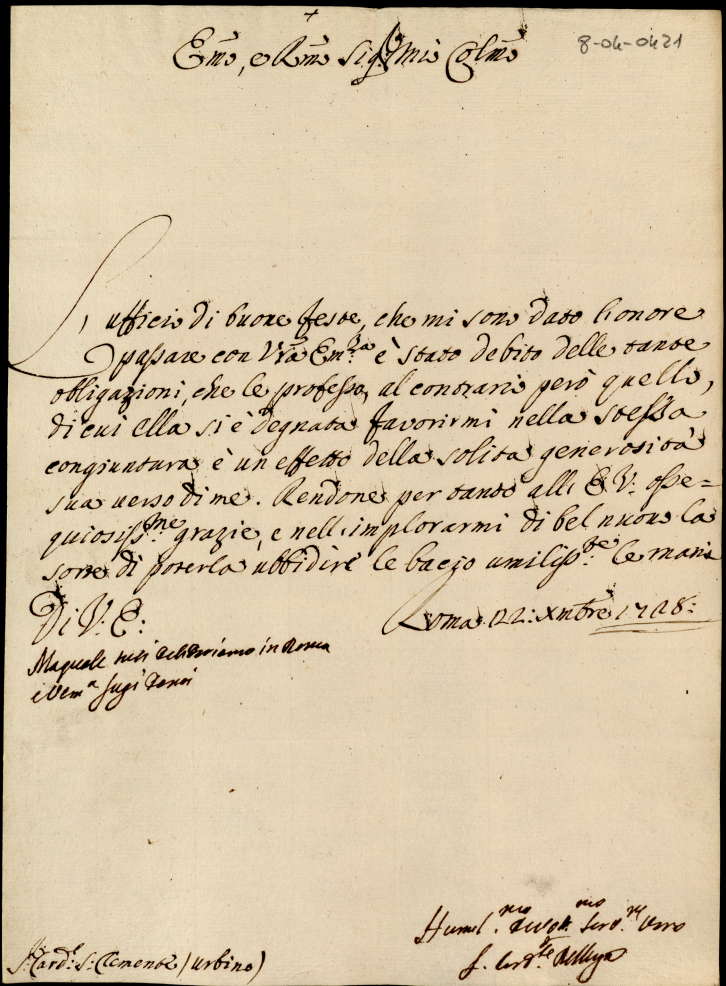 +
8-04-0421
Em̃o, e Rm̃o Sig.r Mio Colm̃o
L'ufficio di buone feste, che mi sono dato l'onore
passare con Vrã Em.za è stato debito delle tante
obligazioni, che le professo, al contrario però quello,
di cui ella si è degnata favorirmi nella stessa
congiuntura è un effetto della solita generosità
sua verso di me. Rendone per tanto all' E.V. osse=
quiosiss.me grazie, e nell'implorarmi di bel nuovo la
sorte di poterla ubbidire le bacio umiliss.te le mani
Di V. E:
Roma 22: Xmbre 1728:
in Roma
Humil.mo Devot.mo Serv.re Vero
Card.le
S.r Card.l S: Clemente / Urbino)